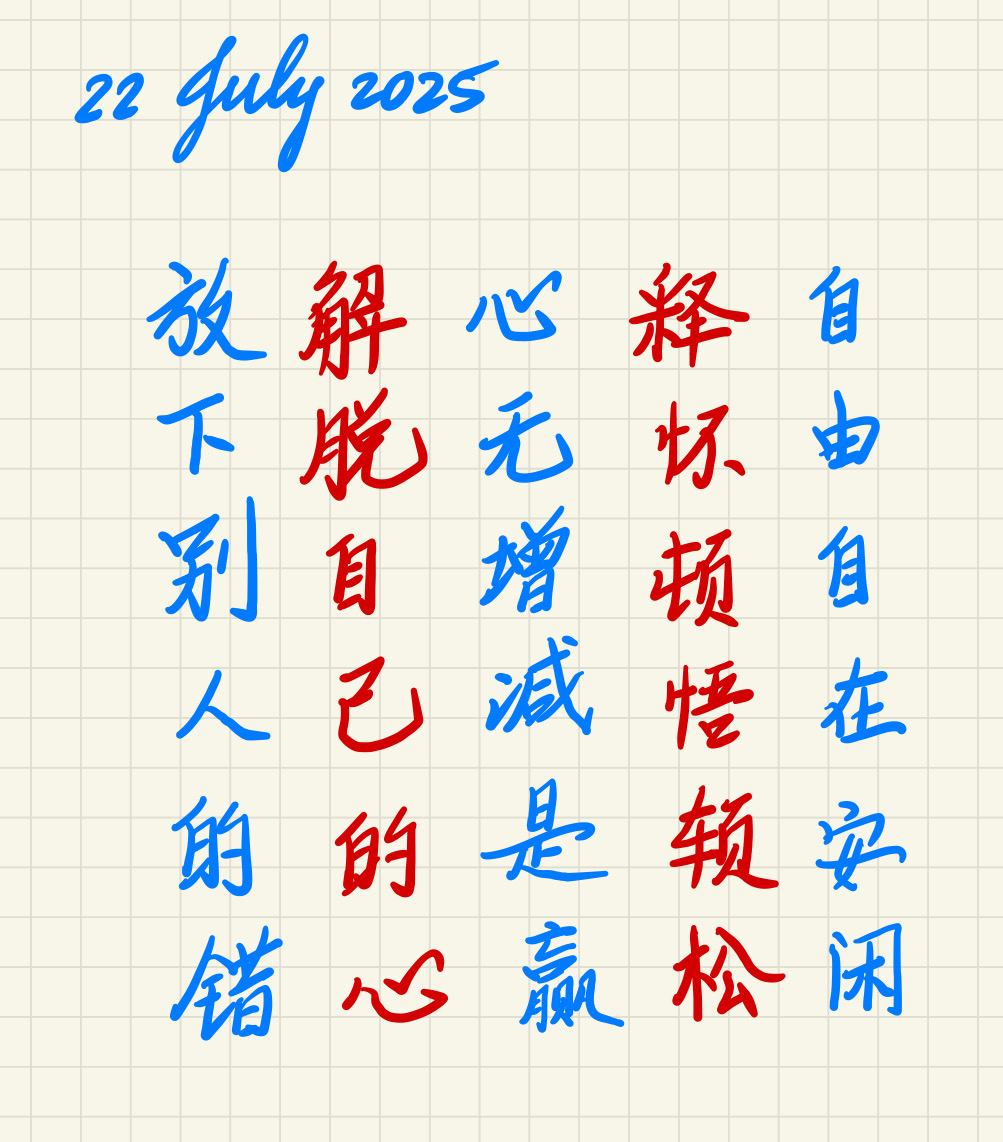 22 July 2025
放下别人的错
解脱自己的心
心无增减是赢
释怀顿悟轻松
自由自在安闲